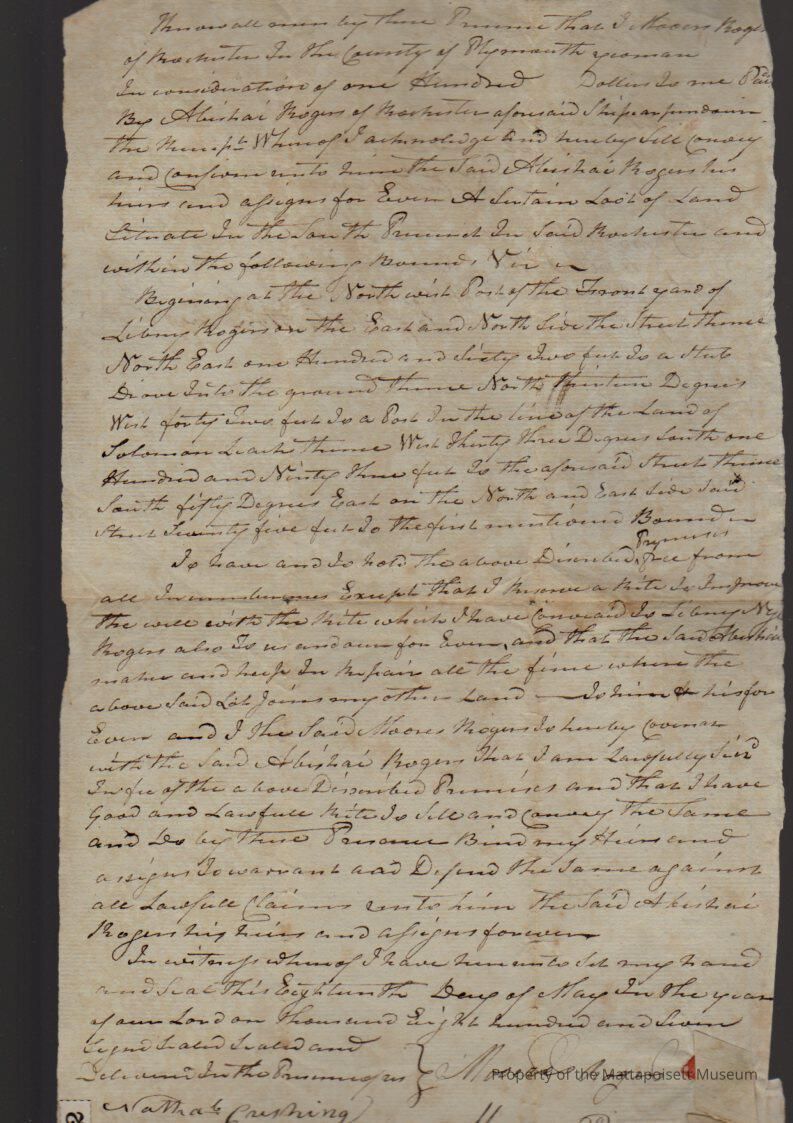 Know all men by these Presence that I Moores Roge
of Rochester In the County of Plymouth yeoman
In consideration of one Hundred Dollers to me Paid
By Abishai Rogers of Rochester aforesaid Shipcarpender
the Receipt Whereof I acknolidge and hereby Sell Convey
and Confirm unto him the Said Abishai Rogers his
heirs and assigns for Ever A Sertain Loot of Land
Situate In the South Precinct In Said Rochester and
within the following Bounds Viz
Begining at the North west Post of the Front yard of
Libeny Rogers on the East and North Side the Street thence
North East one Hundred and Sixty Two feet to a Stub
Drove Into the ground thence North thirteen Degrees
West forty two feet To a Post In the line of the Land of
Solomon Leach thence West Thirty Three Degrees South one
Hundred and Ninty three feet To the aforesaid Street thence
South fifty Degrees East on the North and East Side Said
Street Seventy five feet To the first mentioned Bound
Premises
To have and to hold the above Discribed free from
all Incumbrances Except that I Reserve a Rite to Improve
the well with the Rite which I have Convaid to Libeny
Rogers also To us and our for Ever and that the Said Abishai
makes and keeps In Repair all the fence where the
above Said Lot Joins my other Land to him & his for
Ever and I the Said Moores Rogers Do hereby Covenant
with the Said Abishai Rogers that I am Lawfully
In fee of the above Discribed Premises and that I have
Good and Lawfull Rite To Sell and Convey the Same
and Do by these Presence Bind my Heirs and
assigns To warrant and Defend the Same against
all Lawfull Claims unto him the Said Abishai
Rogers his heirs and assigns forever
In witness whereof I have hereunto Set my hand
and Seal this Eighteenth Day of May In the year
of our Lord on Thousand Eight hundred and Seven
Signd Sealed and
Deliverd In the Presence of us
Property of the Mattapoisett Museum
Nathal Cushing